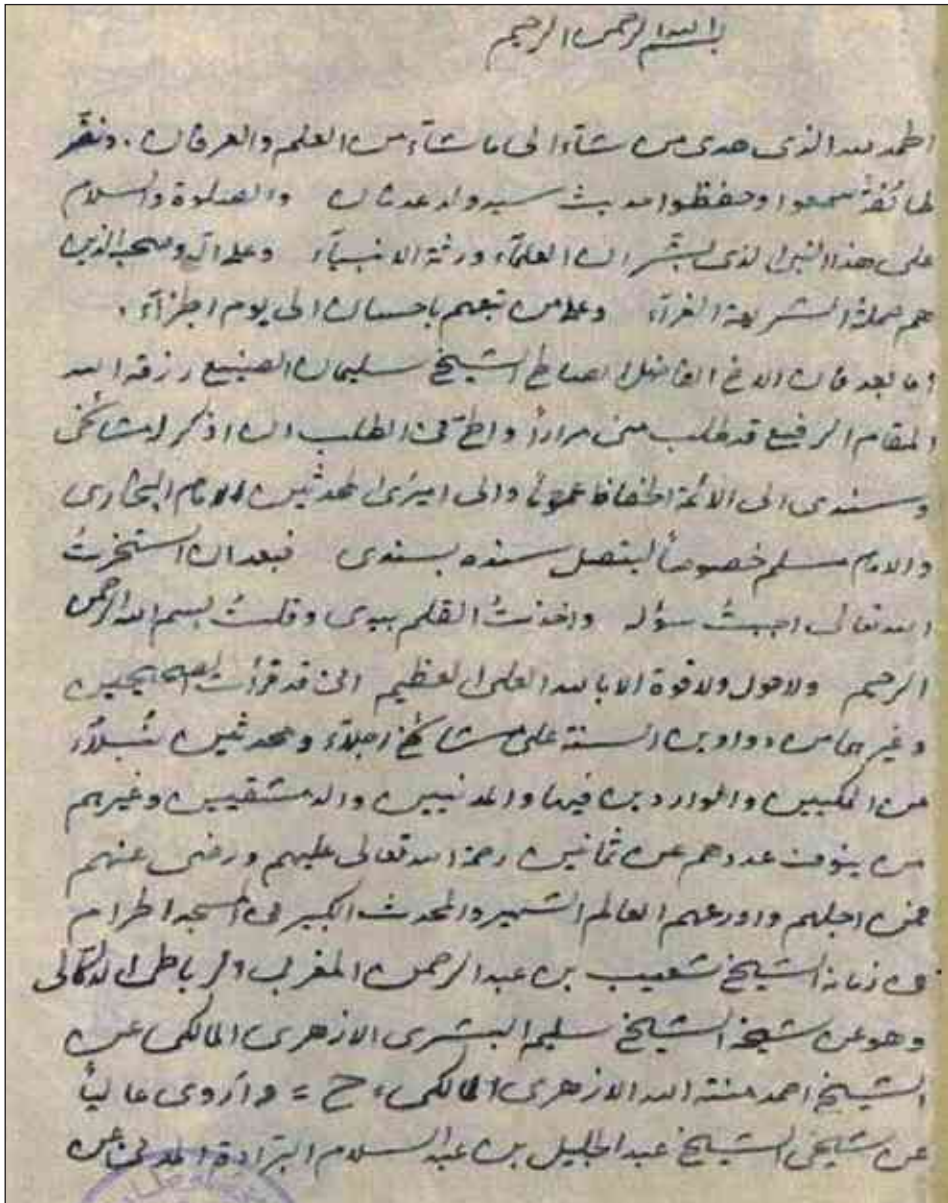 بسم الله الرحمن الرحيم
الحمد لله الذى هدى من شاء الى ما شاء من العلم والعرفان . ونضّر
طائفة سمعوا وحفظوا حديث سيد ولد عدنان والصلوة والسلام
على هذا النبى الذى بشّر ان العلمآء ورثة الانبيآء وعلى آله وصحبه الذين
هم حملة الشريعة الغرآء وعلى من تبعهم باحسان الى يوم الجزآء .
أما بعد فان الاخ الفاضل الصالح الشيخ سليمان الصنيع رزقه الله
المقام الرفيع قد طلب منى مراراً والحّ فى الطلب ان اذكر له مشائخى
وسندى الى الائمة الحفاظ عموماً والى اميرى المحدثين الامام البخارى
والامام مسلم خصوصاً ليتصل سنده بسندى فبعد ان استخرتُ
الله تعالى اجبتُ سؤله واخذتُ القلم بيدى وقلتُ بسم الله الرحمن
الرحيم ولاحول ولاقوة الا بالله العلى العظيم انى قد قرأت الصحيحين
وغيرهما من دواوين السنة على مشائخ اجلآء ومحدثين نُبلآء
من المكيين والواردين فيها والمدنيين والدمشقيين وغيرهم
من ينوف عددهم عن ثمانين رحمة الله تعالى عليهم ورضى عنهم
فمن اجلهم واورعهم العالم الشهير والمحدث الكبير فى المسجد الحرام
فى زمانه الشيخ شعيب بن عبد الرحمن المغربى الرباطى الدكالى
وهو عن شيخه الشيخ سليم البشرى الازهرى المالكى عن
الشيخ احمد منة الله الازهرى المالكى ، ح = وأروى عالياً
عن شيخى الشيخ عبد الجليل بن عبد السلام البرادة المدنى عن